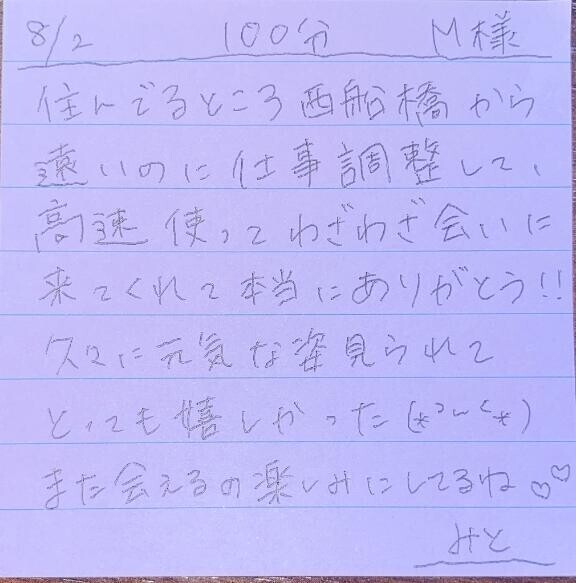 8/2 100分 M様
住んでるところ西船橋から
遠いのに仕事調整して、
高速使ってわざわざ会いに
来てくれて本当にありがとう!!
久々に元気な姿見られて
とっても嬉しかった(*ˊᵕˋ*)
また会えるの楽しみにしてるね♡♡
みと